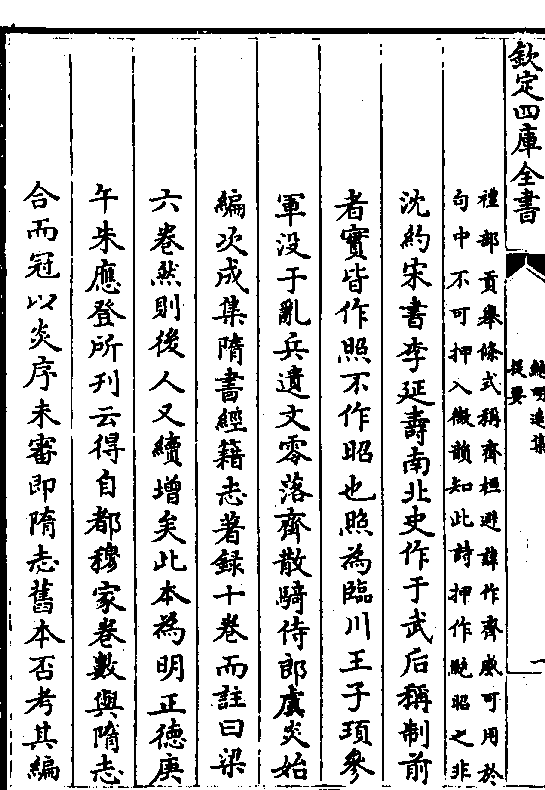 欽定四庫全書
鮑明遠集
提要
一
禮部貢舉條式稱齊桓避諱作齊威可用於
句中不可押入微韻知此詩押作鮑昭之非
沈約宋書李延壽南北史作于武后稱制前
者實皆作照不作昭也照為臨川王子頊參
軍没于亂兵遺文零落齊散騎侍郎虞炎始
編次成集隋書經籍志著録十卷而註曰梁
六卷然則後人又續增矣此本為明正德庚
午朱應登所刊云得自都穆家卷數與隋志
合而冠以炎序未審即隋志舊本否考其編